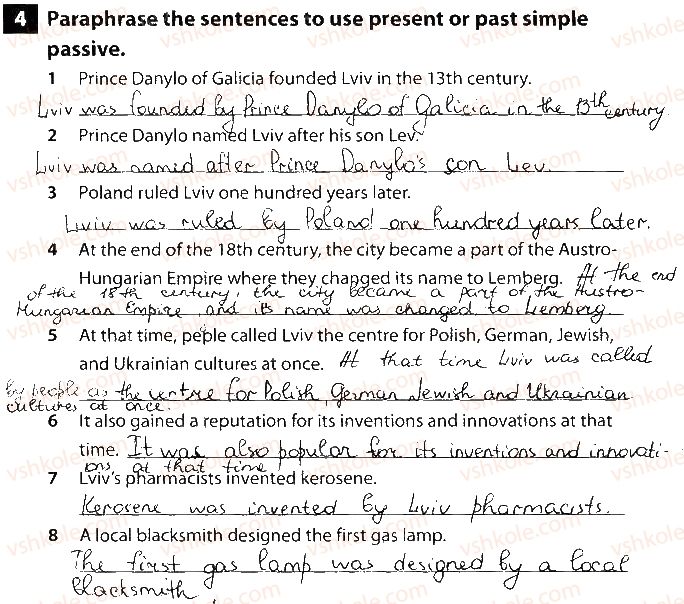 4 Paraphrase the sentences to use present or past simple
passive.
1 Prince Danylo of Galicia founded Lviv in the 13th century.
Lviv was founded by Prince Danylo of Galicia in the 13th century.
2 Prince Danylo named Lviv after his son Lev.
Lviv was named after Prince Danylo's son Lev.
3 Poland ruled Lviv one hundred years later.
Lviv was ruled by Poland one hundred years later.
4 At the end of the 18th century, the city became a part of the Austro-
Hungarian Empire where they changed its name to Lemberg. At the end
of the 18th century, the city became a part of the Austro-
Hungarian Empire and its name was changed to Lemberg.
5 At that time, people called Lviv the centre for Polish, German, Jewish,
and Ukrainian cultures at once. At that time Lviv was called
by people as the centre for Polish, German Jewish and Ukrainian
cultures at once.
6 It also gained a reputation for its inventions and innovations at that
time. It was also popular for its inventions and innovati-
ons at that time.
7 Lviv's pharmacists invented kerosene.
Kerosene was invented by Lviv pharmacists.
8 A local blacksmith designed the first gas lamp.
The first gas lamp was designed by a local
blacksmith.